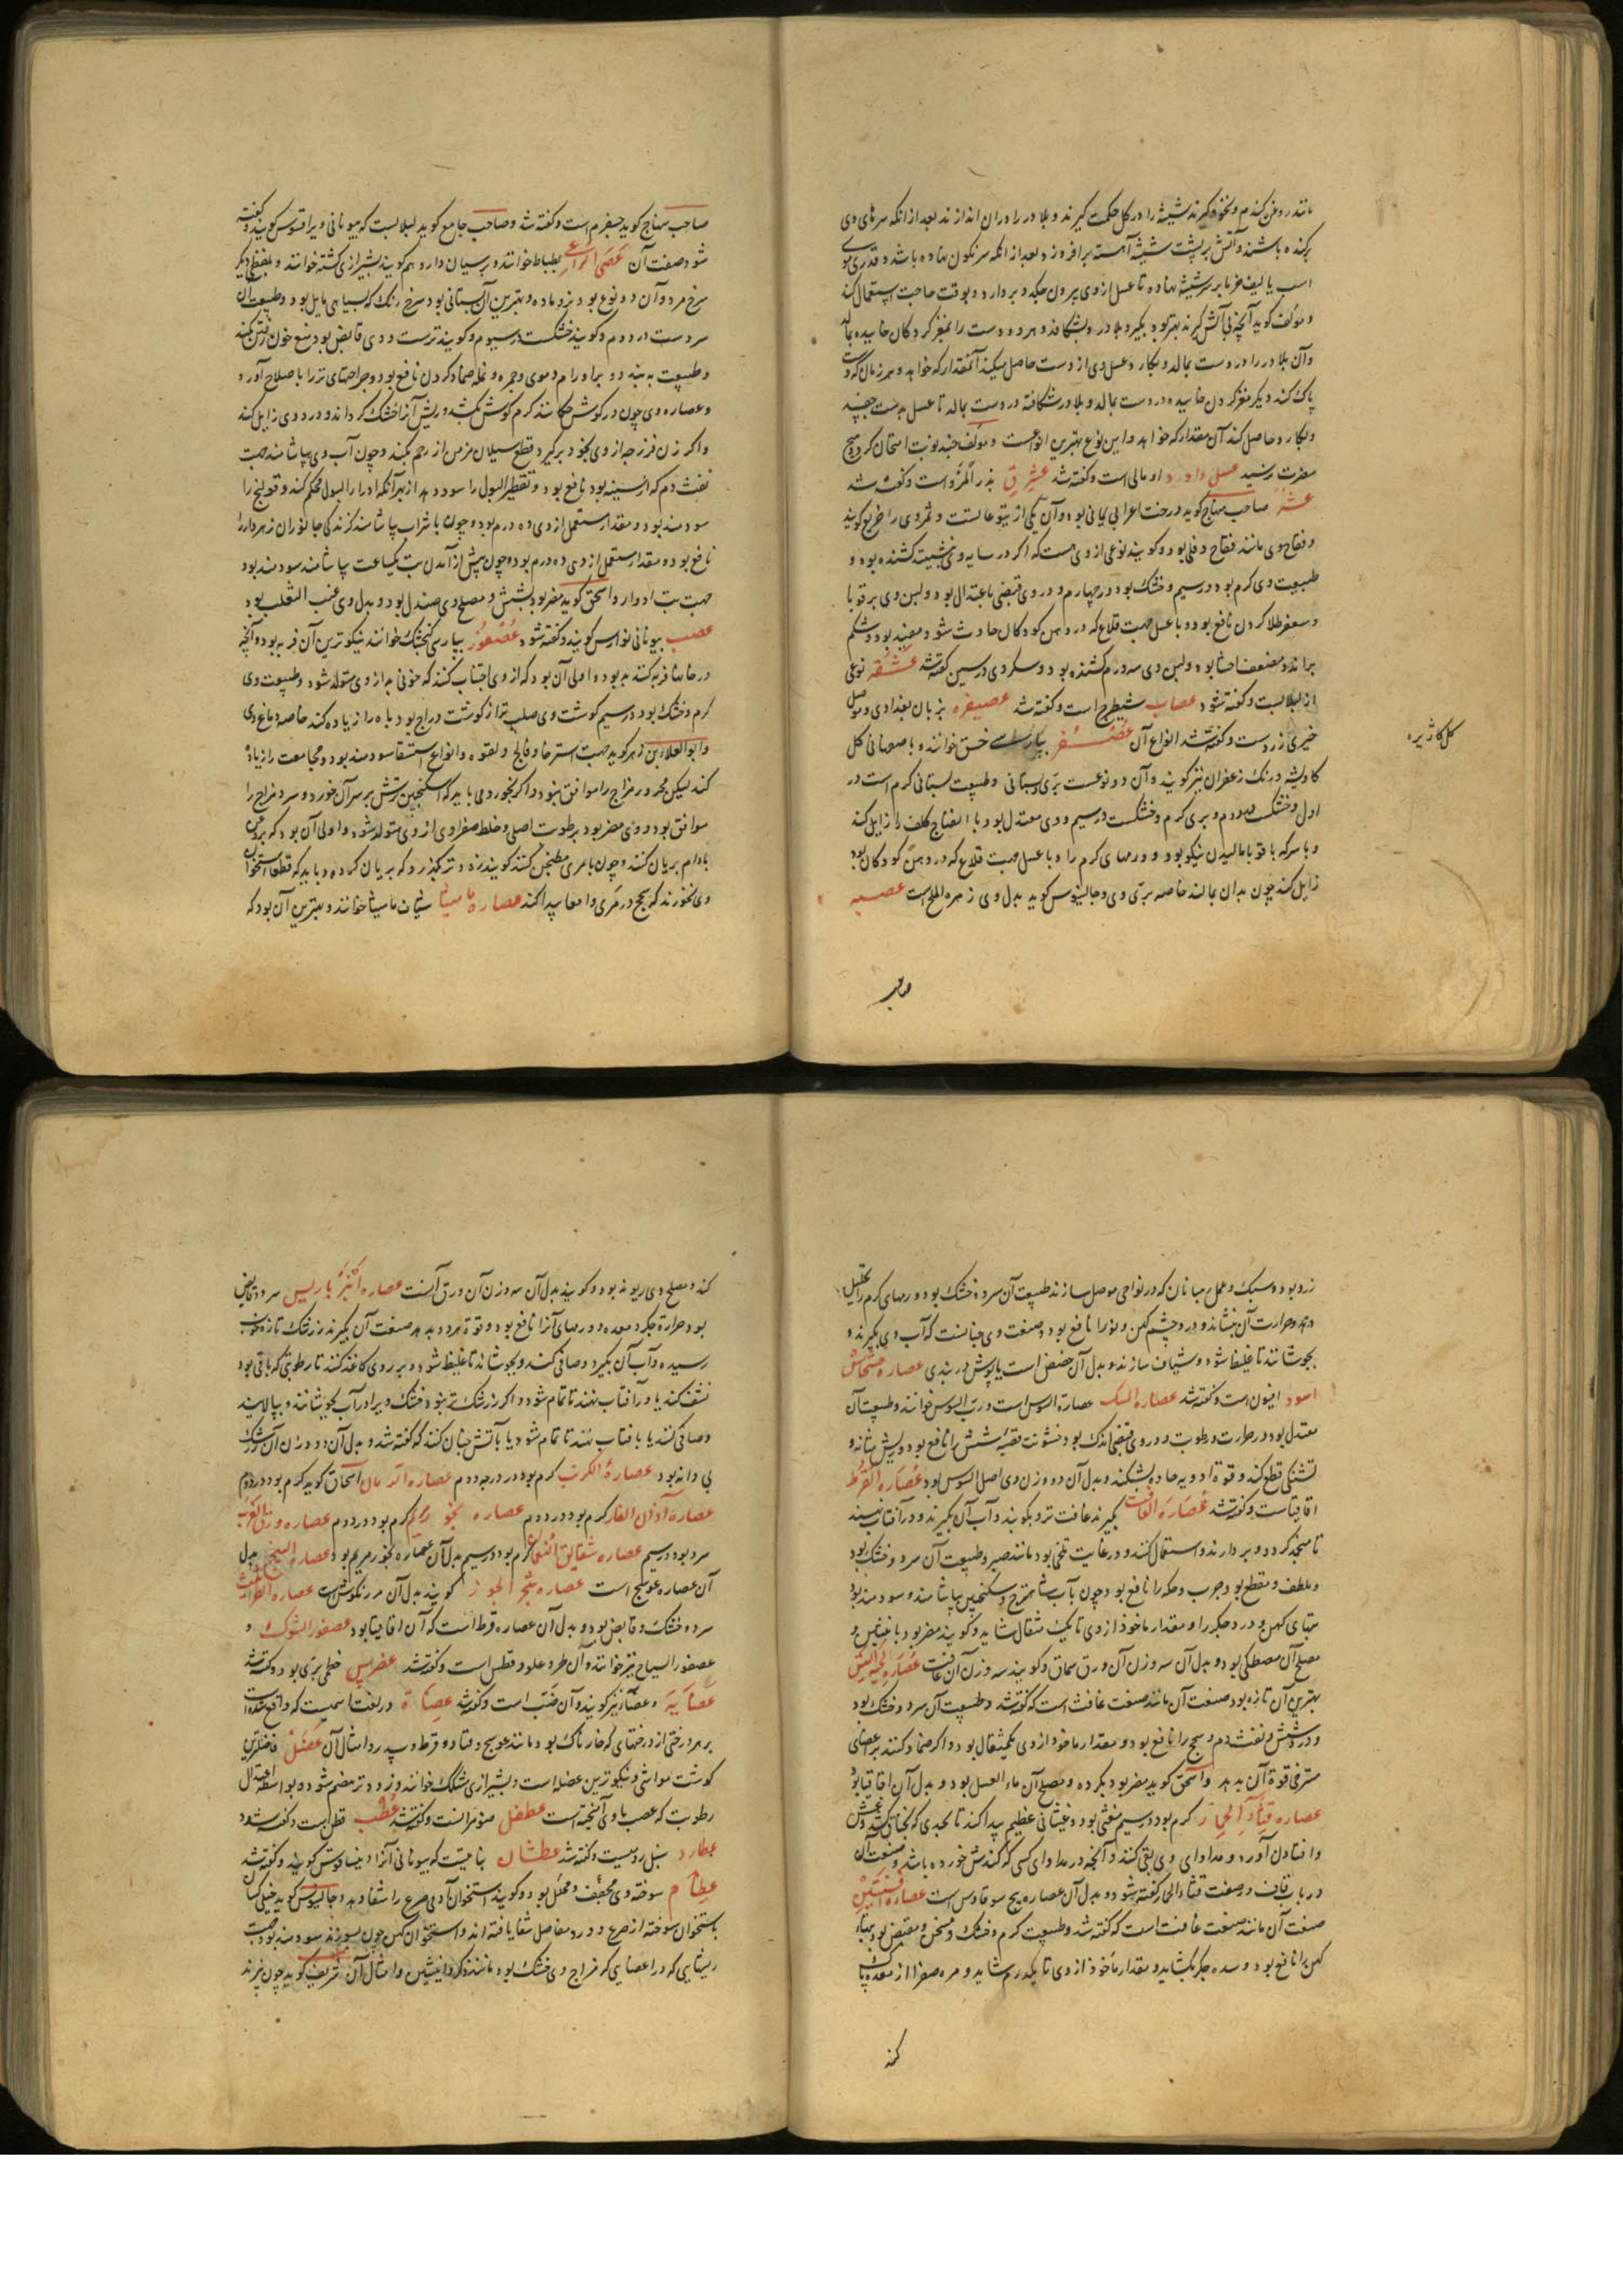 مانند روغن کندم و نخود کیرند شیشه را در کل حکمت کیرند و بلادر را در ان اندازند بعد از انکه سرهای وی
برکنده باشند و آتش بر پشت شیشه آهسته برافروزد بعد از انکه سرنکون نهاده باشد و قدری موی
اسب یا لیف خرما بر سر شیشه نهاده تا عسل از وی بیرون چکد و بردارد و بوقت حاجت استعمال کند
و مؤلف کوید آنچه بی آتش کیرند بهتر بود بکیرد بلادر و بشکافد و هر دو دست را بمغز کردکان خاییده بمالد
و آن بلادر را در دست بمالد و بکارد عسل وی از دست حاصل میکند آنمقدار که خواهد و هر زمان که دست
پاک کند دیکر مغز کردکان خاییده در دست بمالد و بلادر شکافته در دست بمالد تا عسل بدست چسبد
و بکارد حاصل کند آن مقدار که خواهد و این نوع بهترین انواعست و مؤلف چند نوبت امتحان کرد و هیچ
مضرت نرسید عسل داود اومالی است و کفته شد عشرق بذر المرو است و کفته شد
عشر صاحب منهاج کوید درخت اعرابی یمانی بود و آن یکی از یتوعاتست و ثمر وی را خریع کویند
و فقاح وی مانند فقاح دفلی بود و کویند نوعی از وی هست که اکر در سایه وی نشینند کشنده بود و
طبیعت وی کرم بود در سیم و خشک بود در چهارم و در وی قبضی باعتدال بود و لبن وی بر قوبا
و سعفه طلا کردن نافع بود و با عسل جهت قلاع که در دهن کودکان حادث شود مفید بود و شکم
براند و مضعف احشا بود و لبن وی سه درم کشنده بود و سکر وی در سین کفته شد عشقه نوعی
از لبلابست و کفته شود عصاب شیطرج است و کفته شد عصیفره بزبان بغدادی و موصل
خیری زردست و کفته شد انواع آن عصفر بپارسی خسق خوانند و باصفهانی کل
کاویشه و رنک زعفران نیز کویند و آن دو نوعست بری و بستانی و طبیعت بستانی کرم است در
اول و خشکست در دوم و بری کرم و خشکست در سیم و وی معتدل بود با انضاج کلف را زایل کند
و با سرکه با قوبا مالیدن نیکو بود و ورمهای کرم را و با عسل جهت قلاع که در دهن کودکان بود
زایل کند چون بدان بمالند خاصه بری وی و جالینوس کوید بدل وی زهره الملح است عصبه
کل کاژیره
صاحب
صاحب منهاج کوید جسفرم است و کفته شد و صاحب جامع کوید لبلابست که بیونانی ویرا قسوس کویند و کفته
شود صفت آن عصی الراعی بطباط خوانند و برسیان دارو هم کویند بشیرازی کشته خوانند و بلفظی دیکر
سرخ مرد و آن دو نوع بود نر و ماده و بهترین آن بستانی بود سرخ رنک که بسیاهی مایل بود و طبیعت آن
سردست در دوم و کویند خشکست در سیوم و کویند ترست و وی قابض بود منع خون رفتن کند
و طبیعت ببندد و بر اورام دموی و جمره و نمله ضماد کردن نافع بود و جراحتهای تر را باصلاح آورد
و عصاره وی چون در کوش چکانند کرم کوش بکشد و ریش آنرا خشک کرداند و درد وی زایل کند
و اکر زن فرزجه از وی بخود برکیرد قطع سیلان مزمن از رحم بکند و چون آب وی بیاشامند جهت
نفث دم که از سینه بود نافع بود و تقطیر البول را سود دهد از بهر آنکه ادرار البول محکم کند و قولنج را
سودمند بود و مقدار مستعمل از وی ده درم بود و چون با شراب بیاشامند کزندکی جانوران زهردار را
نافع بود و مقدار مستعمل از وی ده درم بود و چون پیش از آمدن تب بیکساعت بیاشامند سودمند بود
جهت تب ادوار و اسحق کوید مضر بود بشش و مصلح وی صندل بود و بدل وی عنب الثعلب بود
عصب بیونانی نوارس کویند و کفته شود عصفور بپارسی کنجشک خوانند نیکوترین آن فربه بود و آنچه
در خانها فربه کنند بد بود و اولی آن بود که از وی اجتناب کنند که خونی بد از وی متولد شود و طبیعت وی
کرم و خشک بود در سیم کوشت وی صلب تر از کوشت دراج بود باه را زیاده کند خاصه دماغ وی
و ابو العلا بن زهر کوید جهت استرخا و فالج و لقوه و انواع استسقا سودمند بود و مجامعت را زیاده
کند لیکن محرور مزاج را موافق نبود و اکر بخورد می باید که سکنجبین ترش بر سر آن خورد و سرد مزاج را
موافق بود و وی مضر بود برطوبت اصلی و خلط صفراوی از وی متولد شود و اولی آن بود که بروغن
بادام بریان کنند و چون با مری مطنجن کنند کویند زودتر بکذرد که بریان کرده و باید که قطعا استخوان
وی نخورند که سحج در مری و امعا پیدا کند عصاره مامیثا شیاف مامیثا خوانند و بهترین آن بود که
زرد بود و سبک و عمل رهبانان که در نواحی موصل سازند طبیعت آن سرد و خشک بود و ورمهای کرم را تحلیل
دهد و حرارت آن بنشاند و درد چشم کهن و نو را نافع بود و صفت وی چنانست که آب وی بکیرند و
بجوشانند تا غلیظ شود و شیاف سازند و بدل آن حضض است یا پوش دربندی عصاره خشخاش
اسود افیون است و کفته شد عصاره السک عصاره السوس است و رب السوس خوانند و طبیعت آن
معتدل بود در حرارت و رطوبت و در وی قبضی اندک بود خشونت قصبه شش را نافع بود و ریش مثانه و
تشنکی قطع کند و قوة ادویه حاده بشکند و بدل آن دو وزن وی اصل السوس بود عصاره القرظ
اقاقیاست و کفته شد عصاره الغافت بکیرند غافت تر و بکوبند و آب آن بکیرند و در آفتاب نهند
تا منجمد کردد و بردارند و استعمال کنند و در غایت تلخی بود مانند صبر و طبیعت آن سرد و خشک بود
و ملطف و مقطع بود جرب و حکه را نافع بود چون بآب شاهترج و سکنجبین بیاشامند و سودمند بود
تبهای کهن و درد جکر را و مقدار ماخوذ از وی تا یک مثقال شاید و کویند مضر بود بانثیین و
مصلح آن مصطکی بود و بدل آن سه وزن آن ورق سماق و کویند سه وزن آن غافت عصاره لحیه التیس
بهترین آن تازه بود صفت آن مانند صفت غافث است که کفته شد و طبیعت آن سرد و خشک بود
و در شش و نفث دم و سحج را نافع بود و مقدار ماخوذ از وی یکمثقال بود و اکر ضماد کنند بر اعضای
مسترخی قوة آن بدهد و اسحق کوید مضر بود بکرده و مصلح آن ماء العسل بود و بدل آن اقاقیا بود
عصاره قثاء الحمار کرم بود در سیم مغثی بود و غثیانی عظیم پیدا کند تا بحدی که بخناق کشد و غش
و افتادن آورد و مداوای وی بقی کنند و آنچه در مداوای کسی که کندش خورده باشد و صفت آن
در باب قاف در صفت قثاء الحمار کفته شود و بدل آن عصاره بیخ سوقادوس است عصاره افسنتین
صفت آن مانند صفت غافت است که کفته شد و طبیعت کرم و خشک و مسخن و مقبض بود تبهاء
کهن را نافع بود و سده جکر بکشاید و مقدار ماخوذ از وی تا یکدرم شاید و مره صفرا از معده پاک
کند
کند و مصلح وی ریوند بود و کویند بدل آن سه وزن آن ورق آنست عصاره انبرباریس سرد و قابض
بود حرارة جکر و معده و ورمهای آنرا نافع بود و قوة هر دو بدهد صفت آن بکیرند زرشک تازه خوب
رسیده و آب آن بکیرد و صافی کنند و بجوشانند تا غلیظ شود و بر روی کاغذ کنند تا رطوبتی که باقی بود
نشف کند یا در آفتاب نهند تا تمام شود و اکر زرشک تر نبود خشک ویرا در آب بجوشانند و بپالایند
و صافی کنند یا بافتاب نهند تا تمام شود یا بآتش چنان کنند که کفته شد و بدل آن دو وزن آن زرشک
بی دانه بود عصارة الکرنب کرم بود در درجه دوم عصاره الرمان اسحاق کوید کرم بود در دوم
عصاره آذان الفار کرم بود در دوم عصاره بخور مریم کرم بود در دوم عصاره ورق الغرب
سرد بود در سیم عصاره شقایق النعمان کرم بود در سیم بدل آن عصاره بخور مریم بود عصاره البنج بدل
آن عصاره عوسج است عصاره شجر الجوز کویند بدل آن مرزنکوش است عصاره الطراثیث
سرد و خشک و قابض بود و بدل آن عصاره قرظ است که آن اقاقیا بود عصفور الشوک و
عصفور السیاج نیز خوانند و آن طرغلودقطس است و کفته شد عضرس خطمی بری بود و کفته شد
عضایه و عضاء نیز کویند و آن ضب است و کفته شد عضاة در لغت اسمیست که واقع شده است
بر هر درختی از درختهای که خارناک بود مانند عوسج و قتاد و قرظ و سدر و امثال آن عضل فاضلترین
کوشت مواشی و نیکوترین عضله است و بشیرازی شکک خوانند و زودتر هضم شود و بواسطه اعتدال
رطوبت که عصب باوی آمیخته است عطفل صنومر است و کفته شد عطب قطن است و کفته شود
عطارد سنبل رومیست و کفته شد عطشان نباتیست که بیونانی آنرا دینساقوس کویند و کفته شد
عظام سوخته وی مجفف و محلل بود و کویند استخوان آدمی صرع را شفا دهد و جالینوس کوید خیلی کسان
باستخوان سوخته از صرع و درد مفاصل شفا یافته اند و استخوان کهن چون بسوزند سودمند بود جهت
ریشهایی که در اعضایی که مزاج وی خشک بود مانند ذکر و انثیین و امثال آن شریف کوید چون بپزند